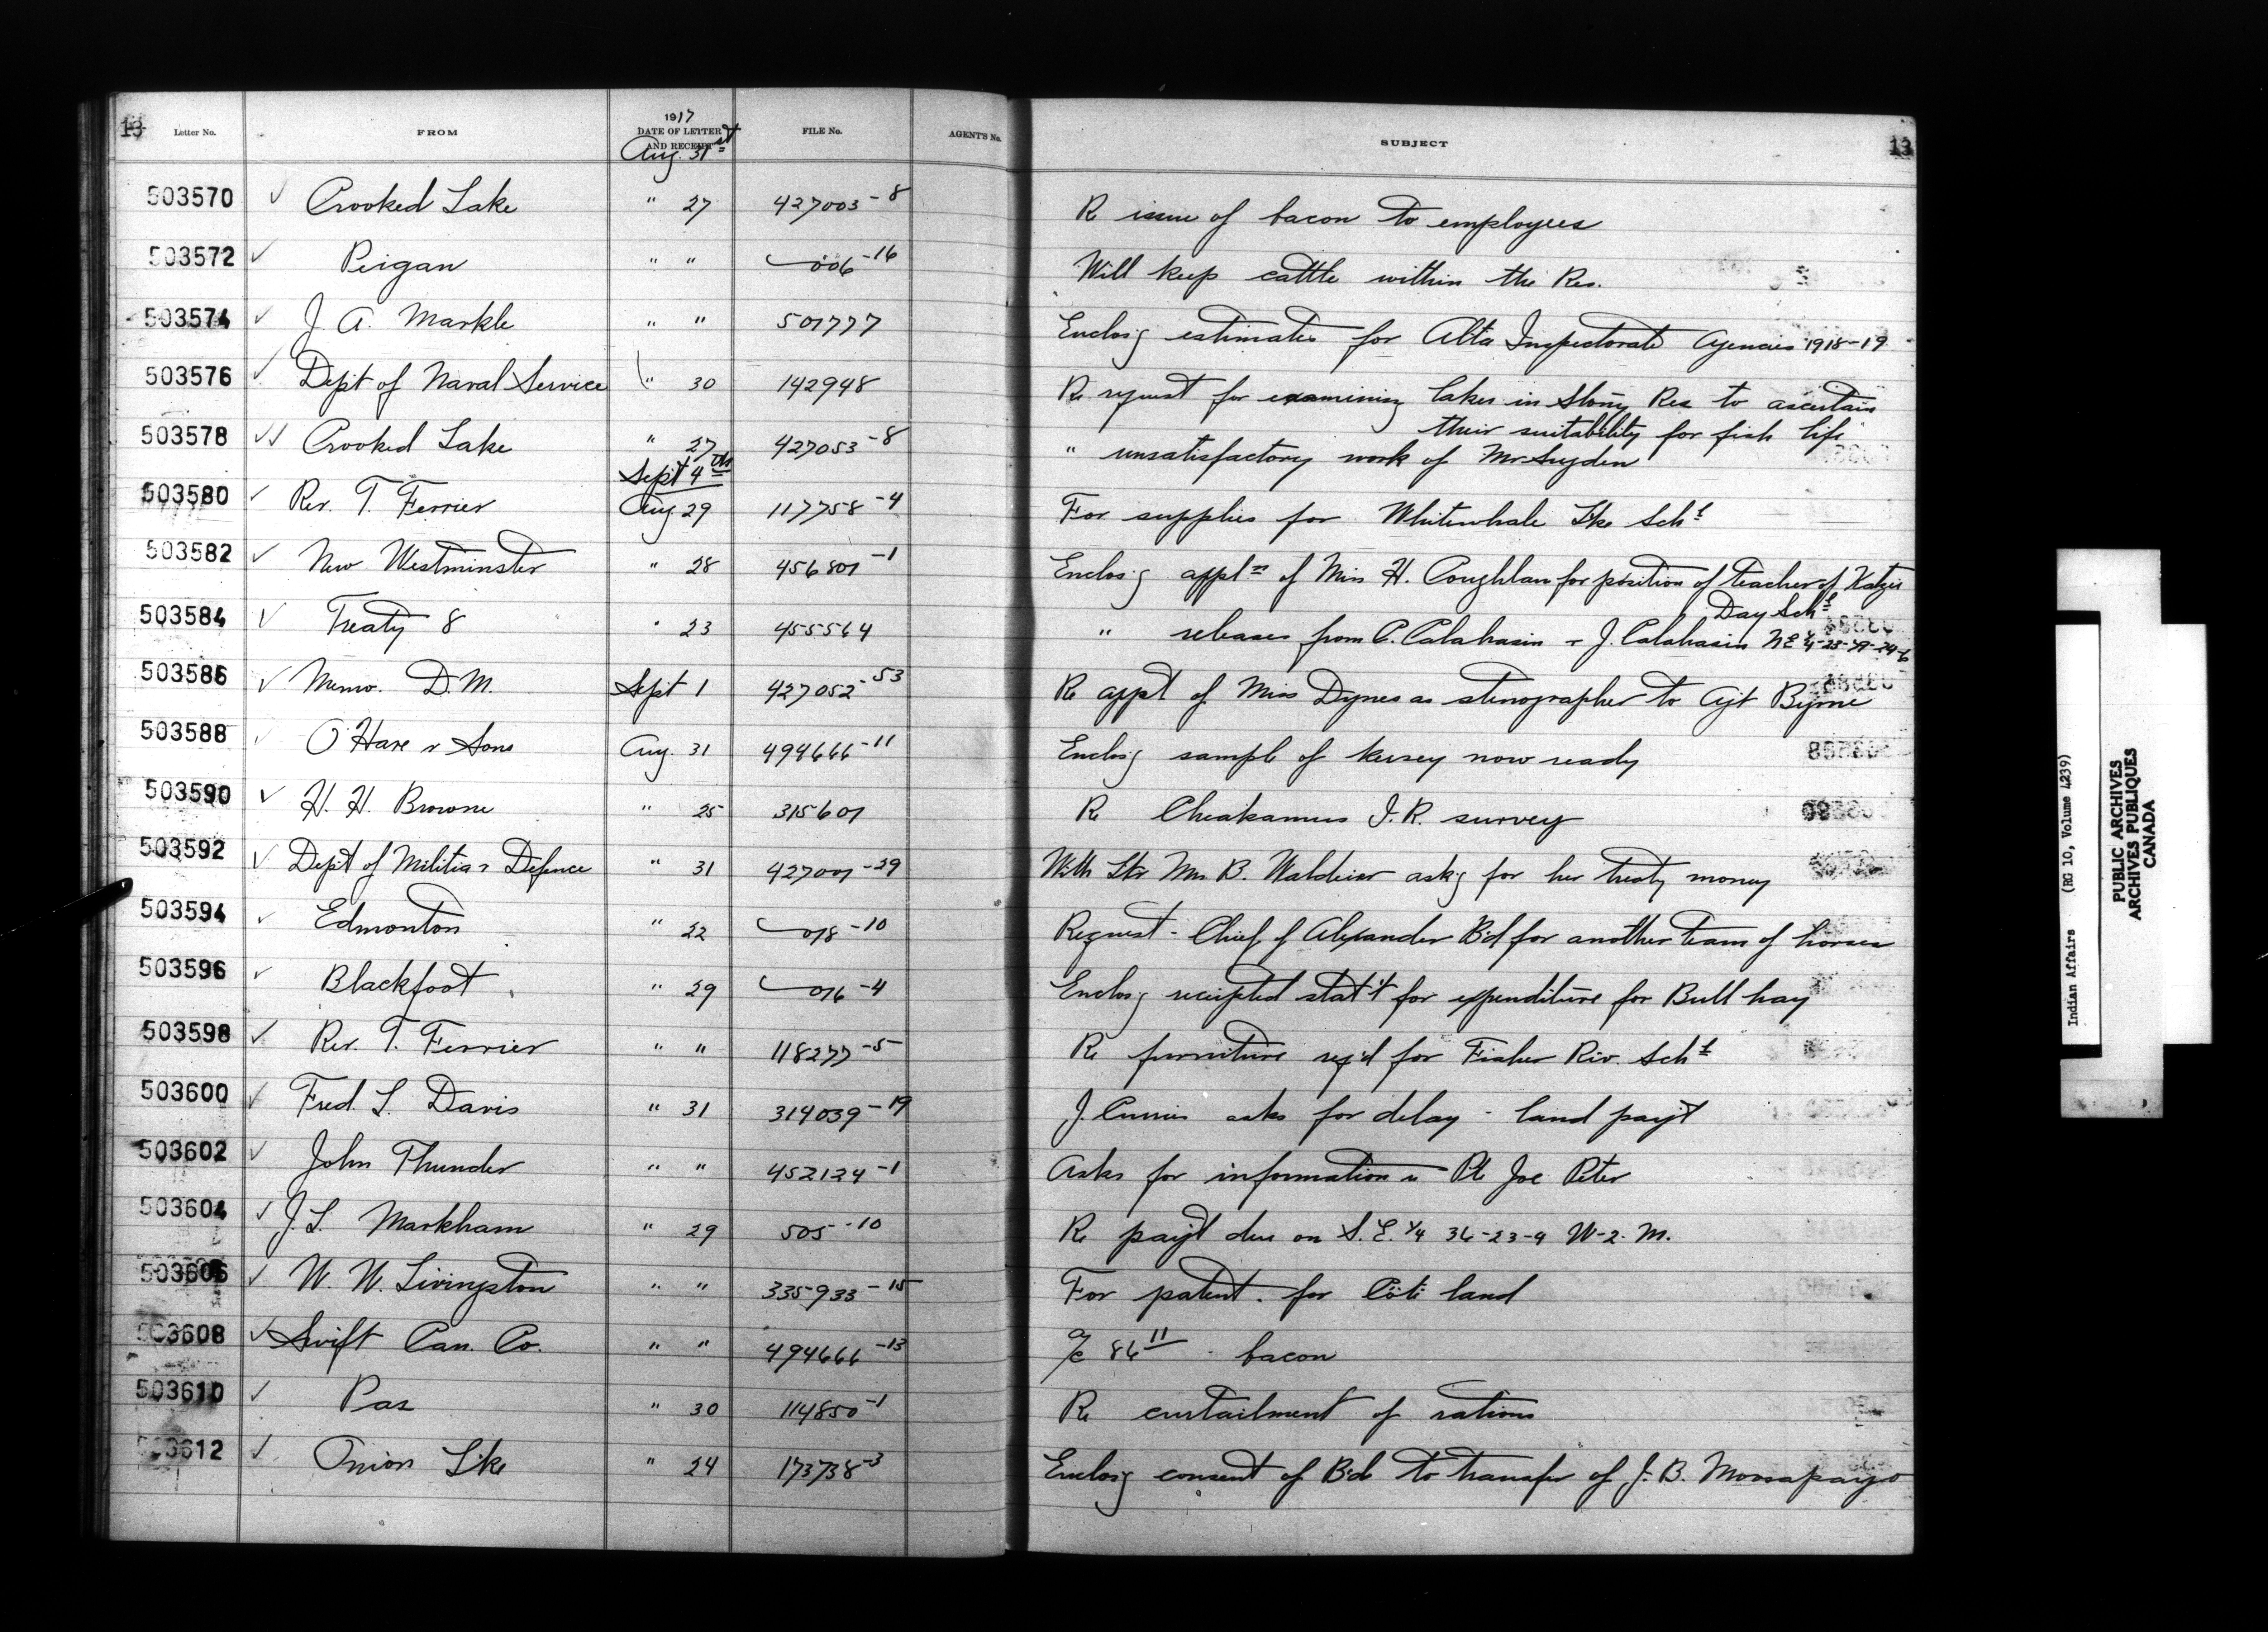 13 Letter No. FROM 1917 DATE OF LETTER AND RECEIPT FILE No. AGENT'S No. SUBJECT 13
Aug. 31st
503570 ✓ Crooked Lake " 27 427003-8 Re issue of bacon to employees
503572 ✓ Peigan " " 006-16 Will keep cattle within the Res.
503574 ✓ J. A. Markle " " 501777 Enclos'g estimates for Alta Inspectorate Agencies 1918-19
503576 ✓ Dept of Naval Service " 30 142948 Re request for examining lakes in Stony Res to ascertain
their suitability for fish life
503578 ✓✓ Crooked Lake " 27 427053-8 " unsatisfactory work of Mr Sugden
Sept 4th
503580 ✓ Rev. T. Ferrier Aug 29 117758-4 For supplies for Whitewhale Lke Schl
503582 ✓ New Westminster " 28 456801-1 Enclos'g appln of Miss H. Coughlan for position of teacher of Katzie
Day Schl
503584 ✓ Treaty 8 " 23 455564 " releases from C. Calahasin & J. Calahasin NE ¼-25-79-24-6
503586 ✓ Memo. D.M. Sept 1 427052-53 Re appt of Miss Dynes as stenographer to Agt Byrne
503588 ✓ O'Hare & Sons Aug. 31 494666-11 Enclos'g sample of kersey now ready
503590 ✓ H. H. Browne " 25 315601 Re Cheakamus I.R. survey
503592 ✓ Dept of Militia & Defence " 31 427001-29 With Ltr Mrs B. askg for her treaty money
503594 ✓ Edmonton " 22 018-10 Request - Chief of Alexander B'd for another team of horses
503596 ✓ Blackfoot " 29 016-4 Enclos'g receipted stat't for expenditure for Bull hay
503598 ✓ Rev. T. Ferrier " " 118277-5 Re furniture req'd for Fisher Riv. Schl
503600 ✓ Fred. L. Davis " 31 314039-19 J. Currie asks for delay - land pay't
503602 ✓ John Thunder " " 452124-1 Asks for information re Pte Joe Peter
503604 ✓ J. L. Markham " 29 505-10 Re pay't due on S.E. ¼ 36-23-9 W-2. M.
503606 ✓ W. W. Livingston " " 335933-15 For patent. for Côté land
503608 ✓ Swift Can. Co. " " 494666-13 a/c 86 11 - bacon
503610 ✓ Pas " 30 114850-1 Re curtailment of rations
503612 ✓ Onion Lke " 24 173738-3 Enclos'g consent of B'd to transfer of J. B.
Indian Affairs (RG 10, Volume 4239)
PUBLIC ARCHIVES
ARCHIVES PUBLIQUES
CANADA